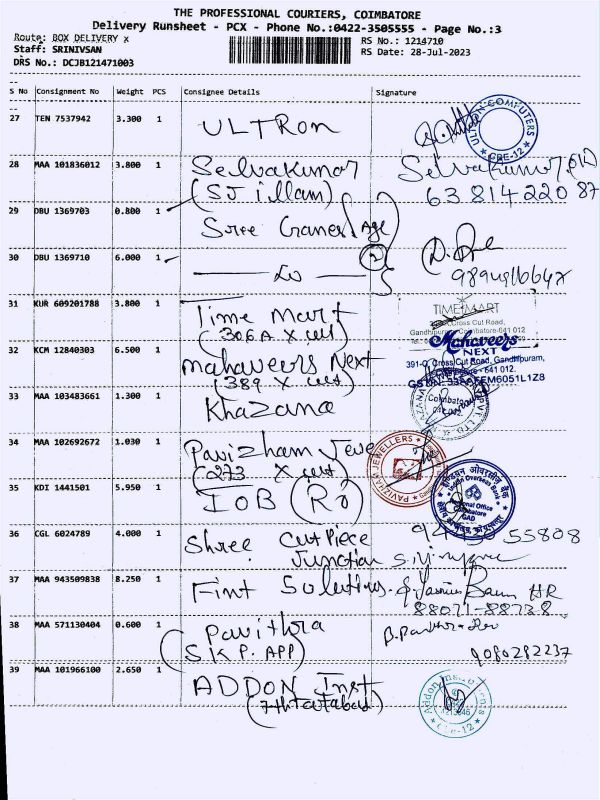 THE PROFESSIONAL COURIERS, COIMBATORE
Delivery Runsheet - PCX - Phone No.:0422-3505555 - Page No.:3
Route: BOX DELIVERY x
RS No.: 1214710
Staff: SRINIVSAN
RS Date: 28-Jul-2023
DRS No.: DCJB121471003
S No Consignment No Weight PCS Consignee Details Signature
27 TEN 7537942 3.300 1 ULTRON
ULTRON COMPUTERS
CBE-12
28 MAA 101836012 3.800 1 Selvakumar
(SJ illam)
Selvakumar
63 814 220 87
29 DBU 1369703 0.800 1 Sree Ganes
30 DBU 1369710 6.000 1
31 KUR 609201788 3.800 1 Time Mart
(306A X cut)
TIME MART
Cross Cut Road,
32 KCM 12840303 6.500 1 mahaveers Next
(389 X cut)
Mahaveers
NEXT
391-G, Cross Cut Road, Gandhipuram,
- 641 012.
33 MAA 103483661 1.300 1 Khazana
Coimbatore
34 MAA 102692672 1.030 1 Pavizham Jewe
(273 X cut)
PAVIZHAM JEWELLERS
35 KDI 1441501 5.950 1 IOB (RO)
इण्डियन ओवरसीज़ बैंक
Indian Overseas Bank
Regional Office
Coimbatore
36 CGL 6024789 4.000 1 Shree Cut Piece
Junction
55808
37 MAA 943509838 8.250 1 Fint Solutions.
HR
88071-88738
38 MAA 571130404 0.600 1 Pavithra
(S.K P. APP)
9080282237
39 MAA 101966100 2.650 1 ADDON Inst
Addon